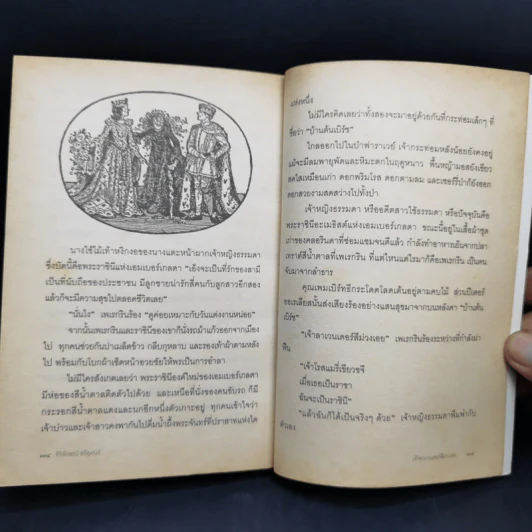 นางใช้ไม้เท้าหงิกงอของนางแตะหน้าผากเจ้าหญิงธรรมดา
ซึ่งบัดนี้คือพระราชินีแห่งเอมเบอร์เกลดา "เอ็งจะเป็นที่รักของสามี
เป็นที่นับถือของประชาชน มีลูกชายน่ารักสี่คนกับลูกสาวอีกสอง
แล้วก็จะมีความสุขไปตลอดชีวิตเลย"
"นั่นไง" เพเรกรินร้อง "ดูค่อยเหมาะกับวันแต่งงานหน่อย"
จากนั้นเพเรกรินและราชินีของเขาก็นั่งรถม้าแก้วออกจากเมือง
ไป ทุกคนช่วยกันปาเมล็ดข้าว กลีบกุหลาบ และรองเท้าผ้าตามหลัง
ไป พร้อมกับโบกผ้าเช็ดหน้าอวยชัยให้พรเป็นการอำลา
ไม่มีใครสังเกตเลยว่า พระราชินีองค์ใหม่ของเอมเบอร์เกลดา
มีห่อของสีน้ำตาลติดตัวไปด้วย และเหนือที่นั่งของคนขับรถ ก็มี
กระรอกสีน้ำตาลแดงและนกอีกหนึ่งตัวเกาะอยู่ ทุกคนเข้าใจว่า
เจ้าบ่าวและเจ้าสาวคงพากันไปดื่มน้ำผึ้งพระจันทร์ที่ปราสาทแห่งใด
๑๑๔
แห่งหนึ่ง
ไม่มีใครคิดเลยว่าทั้งสองจะมาอยู่ด้วยกันที่กระท่อมเล็กๆ ที่
ชื่อว่า "บ้านต้นเบิร์ช"
ไกลออกไปในป่าฟาราเวย์ เจ้ากระท่อมหลังน้อยยังคงอยู่
แม้จะมีลมพายุพัดและหิมะตกในฤดูหนาว พื้นหญ้ามอสยังเขียว
สดใสเหมือนเก่า ดอกพริมโรส ดอกตามลม และเชอร์รี่ป่าก็ยังออก
ดอกสวยงามสดสว่างไปทั้งป่า
เจ้าหญิงธรรมดา หรืออดีตสาวใช้ธรรมดา หรือปัจจุบันคือ
พระราชินีอะเมธิสต์แห่งเอมเบอร์เกลดา ขณะนี้อยู่ในเสื้อผ้าชุด
เก่าของคลอรินดาที่ซ่อมแซมจนดีแล้ว กำลังทำอาหารเย็นจากปลา
เทราต์สีน้ำตาลที่เพเรกริน ที่แต่ไหนแต่ไรมาก็คือเพเรกริน เป็นคน
จับมาจากลำธาร
คุณเพมเบิร์ทธีกระโดดโลดเต้นอยู่ตามคบไม้ ส่วนปีเตอร์
ออเรเลียสนั้นส่งเสียงร้องอย่างแสนสุขมาจากบนหลังคา "บ้านต้น
เบิร์ช"
"เจ้าลาเวนเดอร์สีม่วงเอย" เพเรกรินร้องระหว่างที่กำลังผ่า
ฟืน
"เจ้าโรสแมรี่เขียวขจี
เมื่อเธอเป็นราชา
ฉันจะเป็นราชินี"
"แล้วฉันก็ได้เป็นจริงๆ ด้วย" เจ้าหญิงธรรมดาพึมพำกับ
ตนเอง